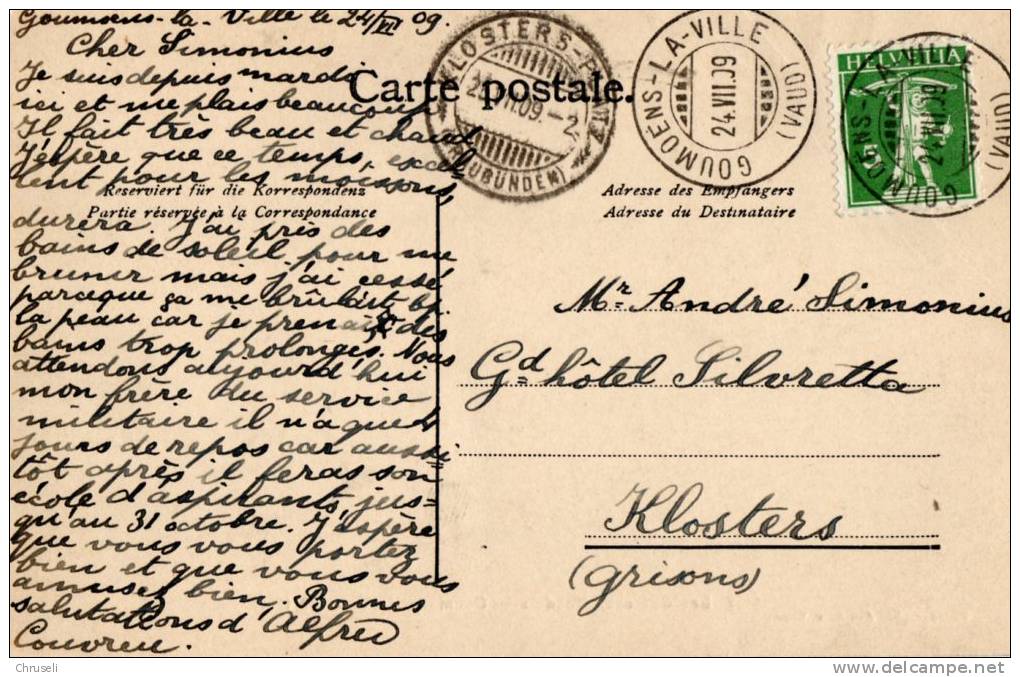 Goumoens-la-Ville le 24/VII 09.
Cher Simonius
Je suis depuis mardi
ici et me plais beaucoup
Il fait très beau et chaud
J'espère que ce temps, excel
lent pour les moissons,
durera. J'ai pris des
bains de soleil pour me
brunir mais j'ai cessé
parceque ça me brûlait
la peau car je prenais des
bains trop prolongés. Nous
attendons aujourd'hui
mon frère du service
militaire il n'a que 4
jours de repos car aussi=
tôt après il feras son
école d'aspirants, jus=
qu'au 31 octobre. J'espère
que vous vous portez
bien et que vous vous
amusez bien. Bonnes
salutations d'Alfred
Couvreu.
Carte postale.
Reserviert für die Korrespondenz
Partie réservée à la Correspondance
Adresse des Empfängers
Adresse du Destinataire
KLOSTERS-PLATZ
VII.09.-2
(GRAUBÜNDEN)
GOUMOENS-LA-VILLE
24.VII.09
(VAUD)
HELVETIA
GOUMOENS-LA-VILLE
24.VII.09
(VAUD)
Mr. André Simonius
Gd hôtel Silvretta
Klosters
(Grisons)
Chruseli
www.delcampe.net